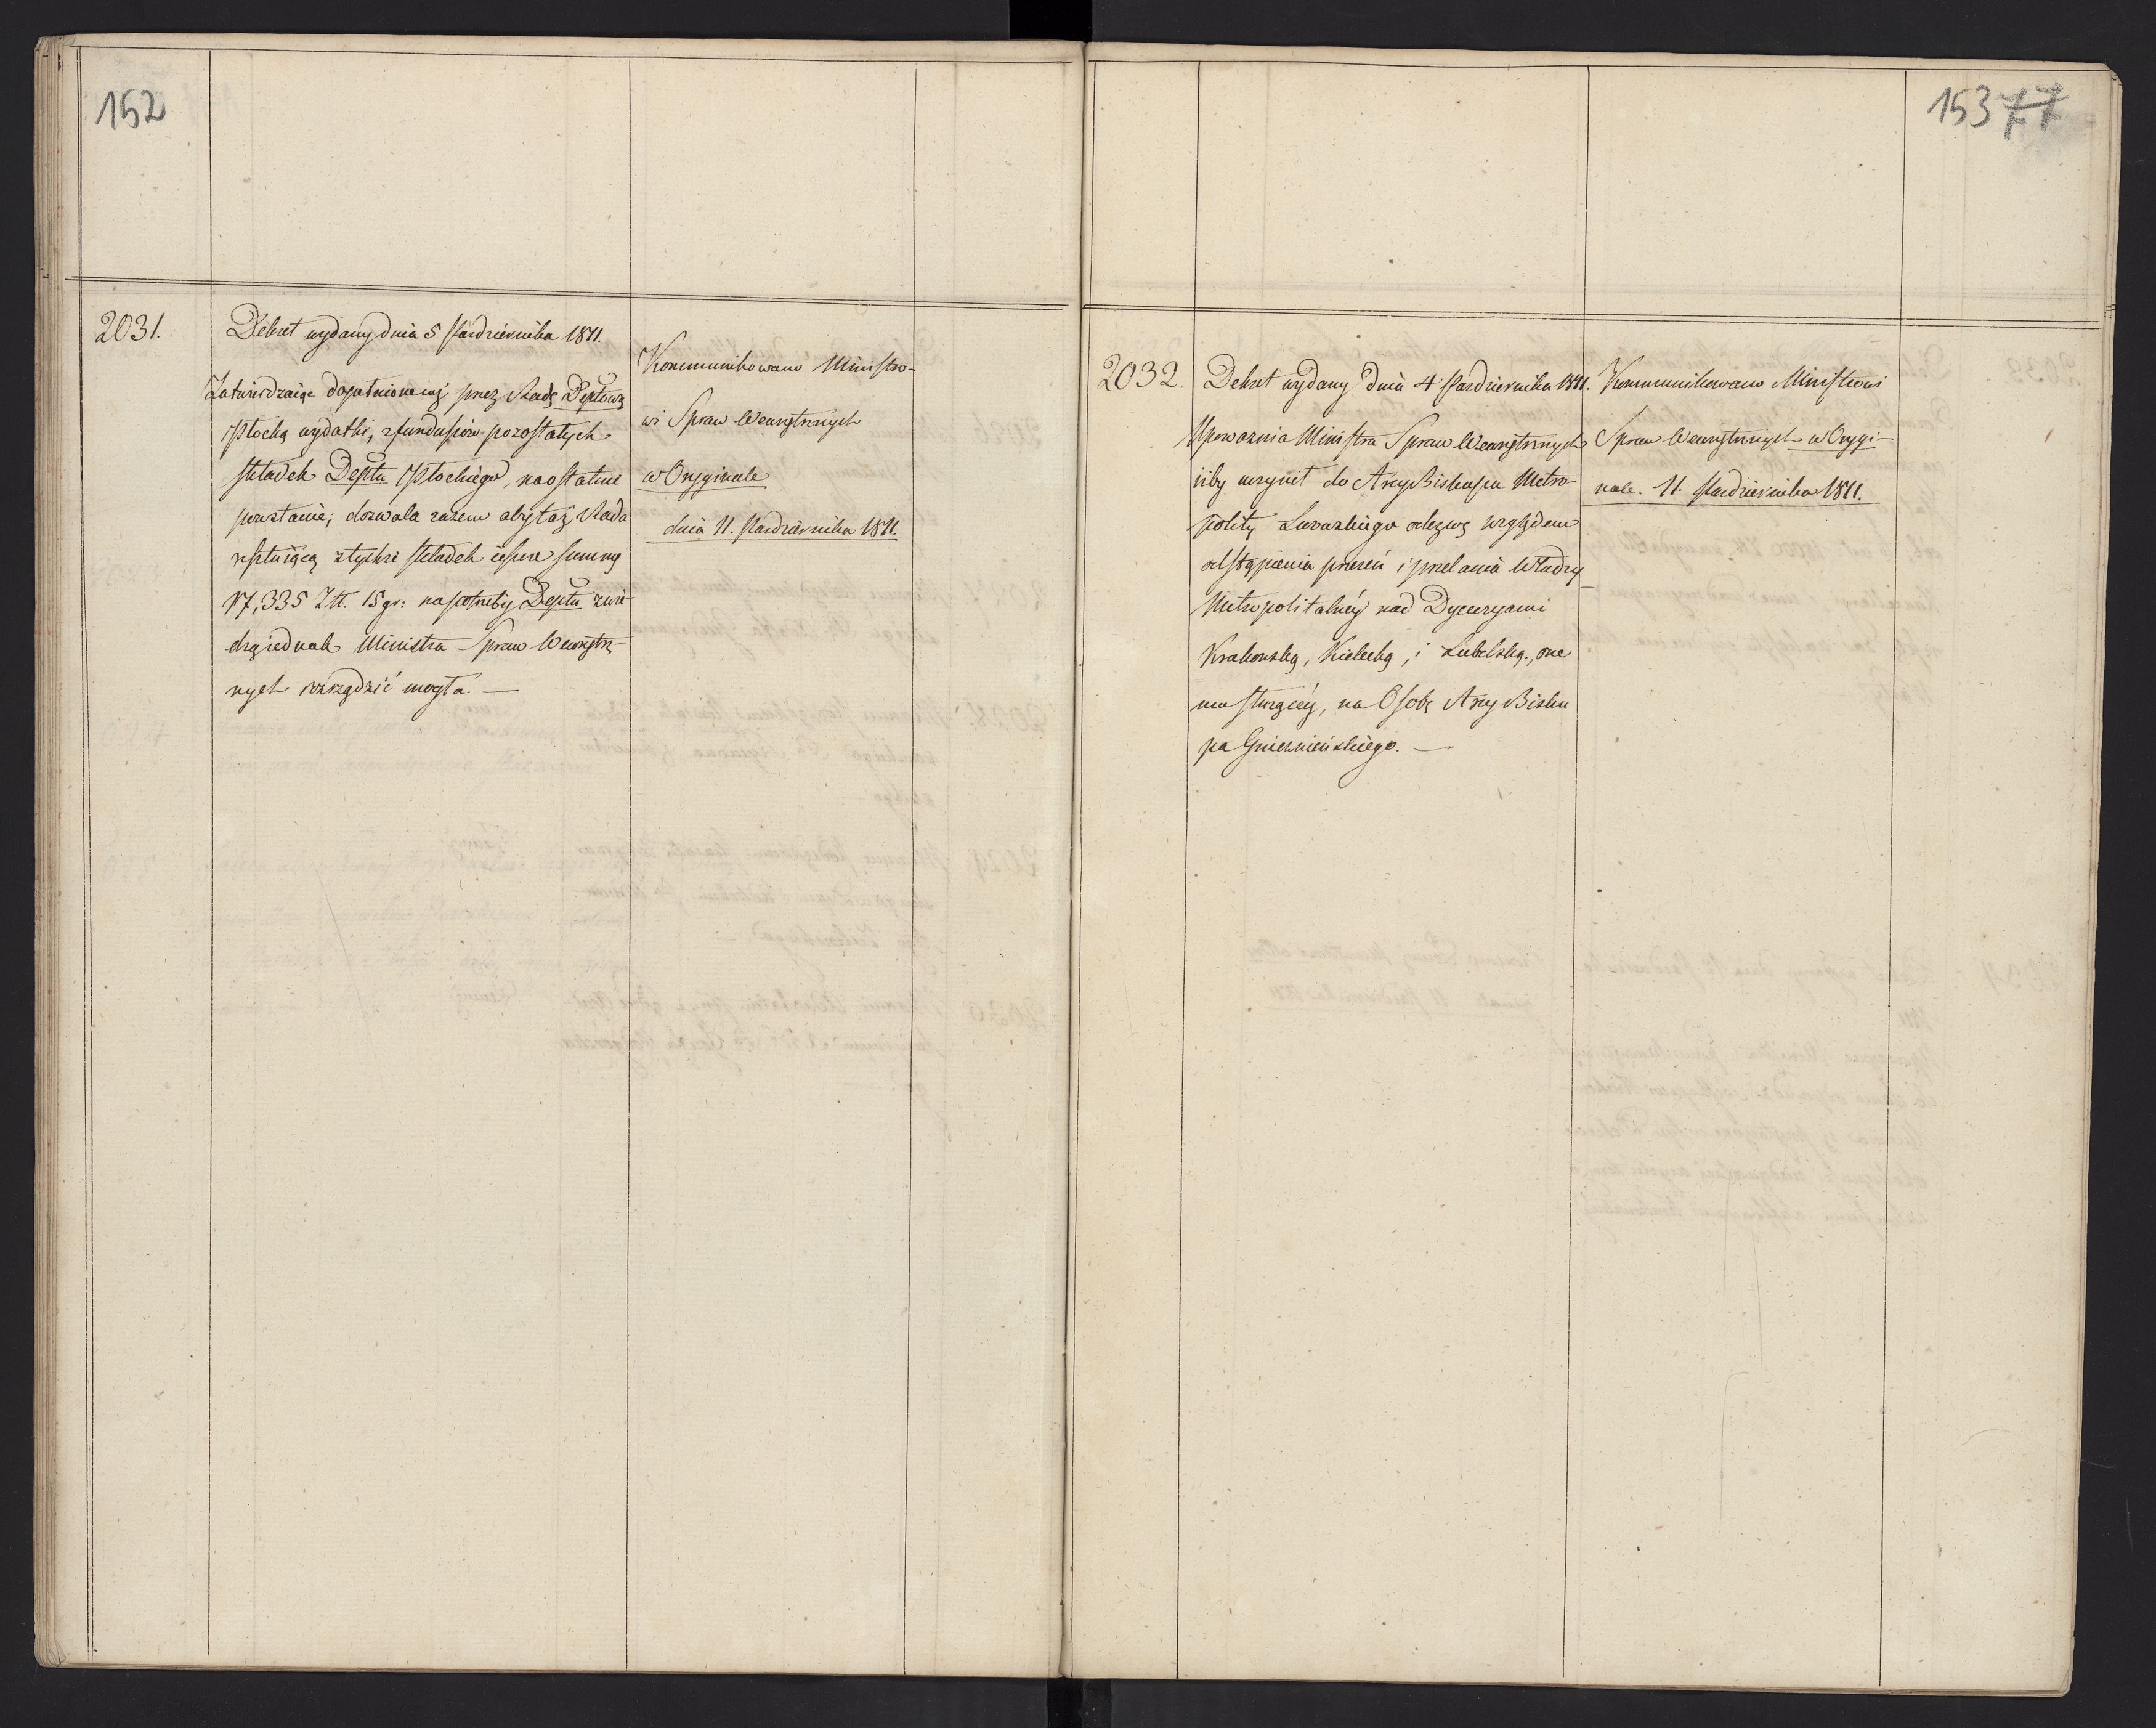 152
2031.
Dekret wydany dnia 5 Października 1811.
Zatwierdzaiąc dopełnione iuż przez Radę Deptową
Płocką wydatki, z funduszów pozostałych
składek Deptu Płockiego, na ostatnie
powstanie; dozwala razem aby taż Rada
resztuiącą z tychże składek ieszcze summę
17,335 Złł. 15 gr: na potrzeby Deptu zwie-
dzą iednak Ministra Spraw Wewnętrz-
nych rozrządzić mogła. —
Kommunikowano Ministro-
wi Spraw Wewnętrznych
w Oryginale
dnia 11. Października 1811.
153 77
2032.
Dekret wydany dnia 4 Października 1811.
Upoważnia Ministra Spraw Wewnętrznych
iżby uczynił do Arcy Biskupa Metro-
polity Lwowskiego odezwę względem
odstąpienia przezeń i przelania Władzy
Metropolitalnéy nad Dyecezyami
Krakowską, Kielecką, i Lubelską, one
mu służącéy, na Osobę Arcy Bisku
pa Gnieznieńskiego. —
Kommunikowano Ministrowi
Spraw Wewnętrznych w Orygi-
nale. 11. Października 1811.